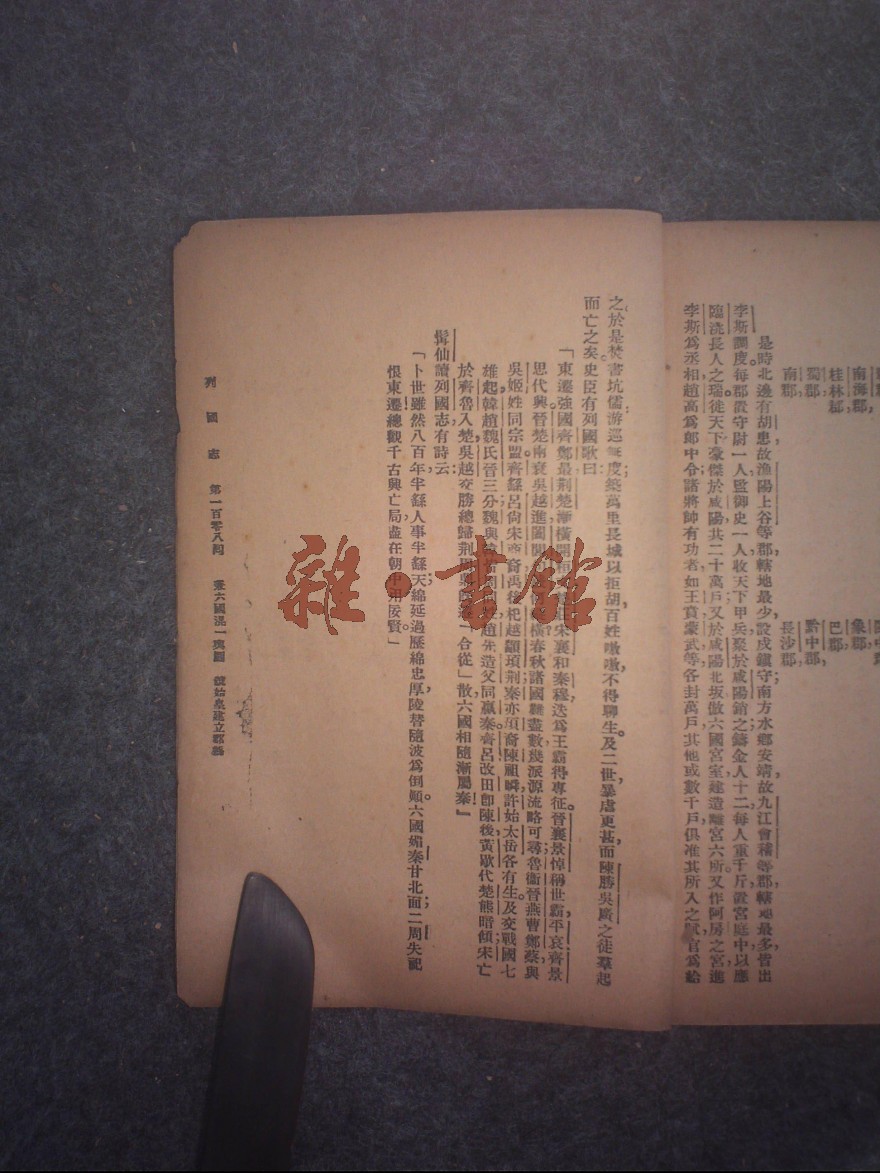 南海郡，
桂林郡，
蜀郡，
南郡，
象郡，
巴郡，
黔中郡，
長沙郡，
是時北邊有胡患，故漁陽上谷等郡，轄地最少，設戍鎮守；南方水鄉安靖，故九江會稽等郡，轄地最多，皆出
李斯調度。每郡置守尉一人，監御史一人。收天下甲兵，聚於咸陽銷之，鑄金人十二，每人重千斤，置宮庭中，以應
臨洮長人之瑞。徙天下豪傑於咸陽，共二十萬戶。又於咸陽北坂，倣六國宮室，建造離宮六所。又作阿房之宮。進
李斯爲丞相，趙高爲郎中令。諸將帥有功者，如王賁蒙武等，各封萬戶，其他或數千戶，俱准其所入之賦，官爲給
之。於是焚書坑儒，游巡無度；築萬里長城以拒胡，百姓嗷嗷，不得聊生。及二世，暴虐更甚，而陳勝吳廣之徒，羣起
而亡之矣。史臣有列國歌曰：
「東遷強國齊鄭最，荊楚漸橫開
宋襄和秦穆，迭爲王霸得專征。晉襄景悼稱世霸，平哀齊景
思代興。晉楚兩衰吳越進，闔閭
橫。春秋諸國難盡數，幾派源流略可尋。魯衞晉燕曹鄭蔡與
吳姬姓同宗盟。齊繇呂尙宋商裔，禹後杞越顓頊荊。秦亦頊裔陳祖舜，許始太岳各有生。及交戰國七
雄起，韓趙魏氏晉三分。魏與
趙先造父同嬴秦。齊呂改田卽陳後，黃歇代楚熊暗傾。宋亡
於齊魯入楚，吳越交勝總歸荊。周
「合從」散，六國相隨漸屬秦！」
髯仙讀列國志，有詩云：
「卜世雖然八百年，半繇人事半繇天。綿延過歷緜忠厚，陵替隨波爲倒顚。六國媚秦甘北面，二周失祀
恨東遷。總觀千古興亡局，盡在朝中用佞賢。」
列國志　第一百零八回　兼六國混一輿圖　號始皇建立郡縣
雜·書館